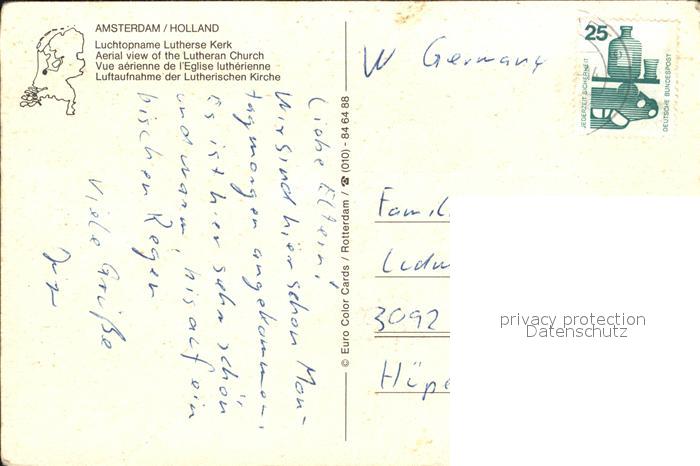 AMSTERDAM / HOLLAND
Luchtopname Lutherse Kerk
Aerial view of the Lutheran Church
Vue aérienne de l'Eglise luthérienne
Luftaufnahme der Lutherischen Kirche
Liebe Eltern!
Wir sind hier schon Mon-
tagmorgen angekommen.
Es ist hier sehr schön
und warm, bis auf ein
bischen Regen
Viele Grüße
© Euro Color Cards / Rotterdam / ☎ (010) - 84 64 88
W Germany
25
JEDERZEIT SICHERHEIT
DEUTSCHE BUNDESPOST
Famil
Ludw
3092
Hüpe
privacy protection
Datenschutz